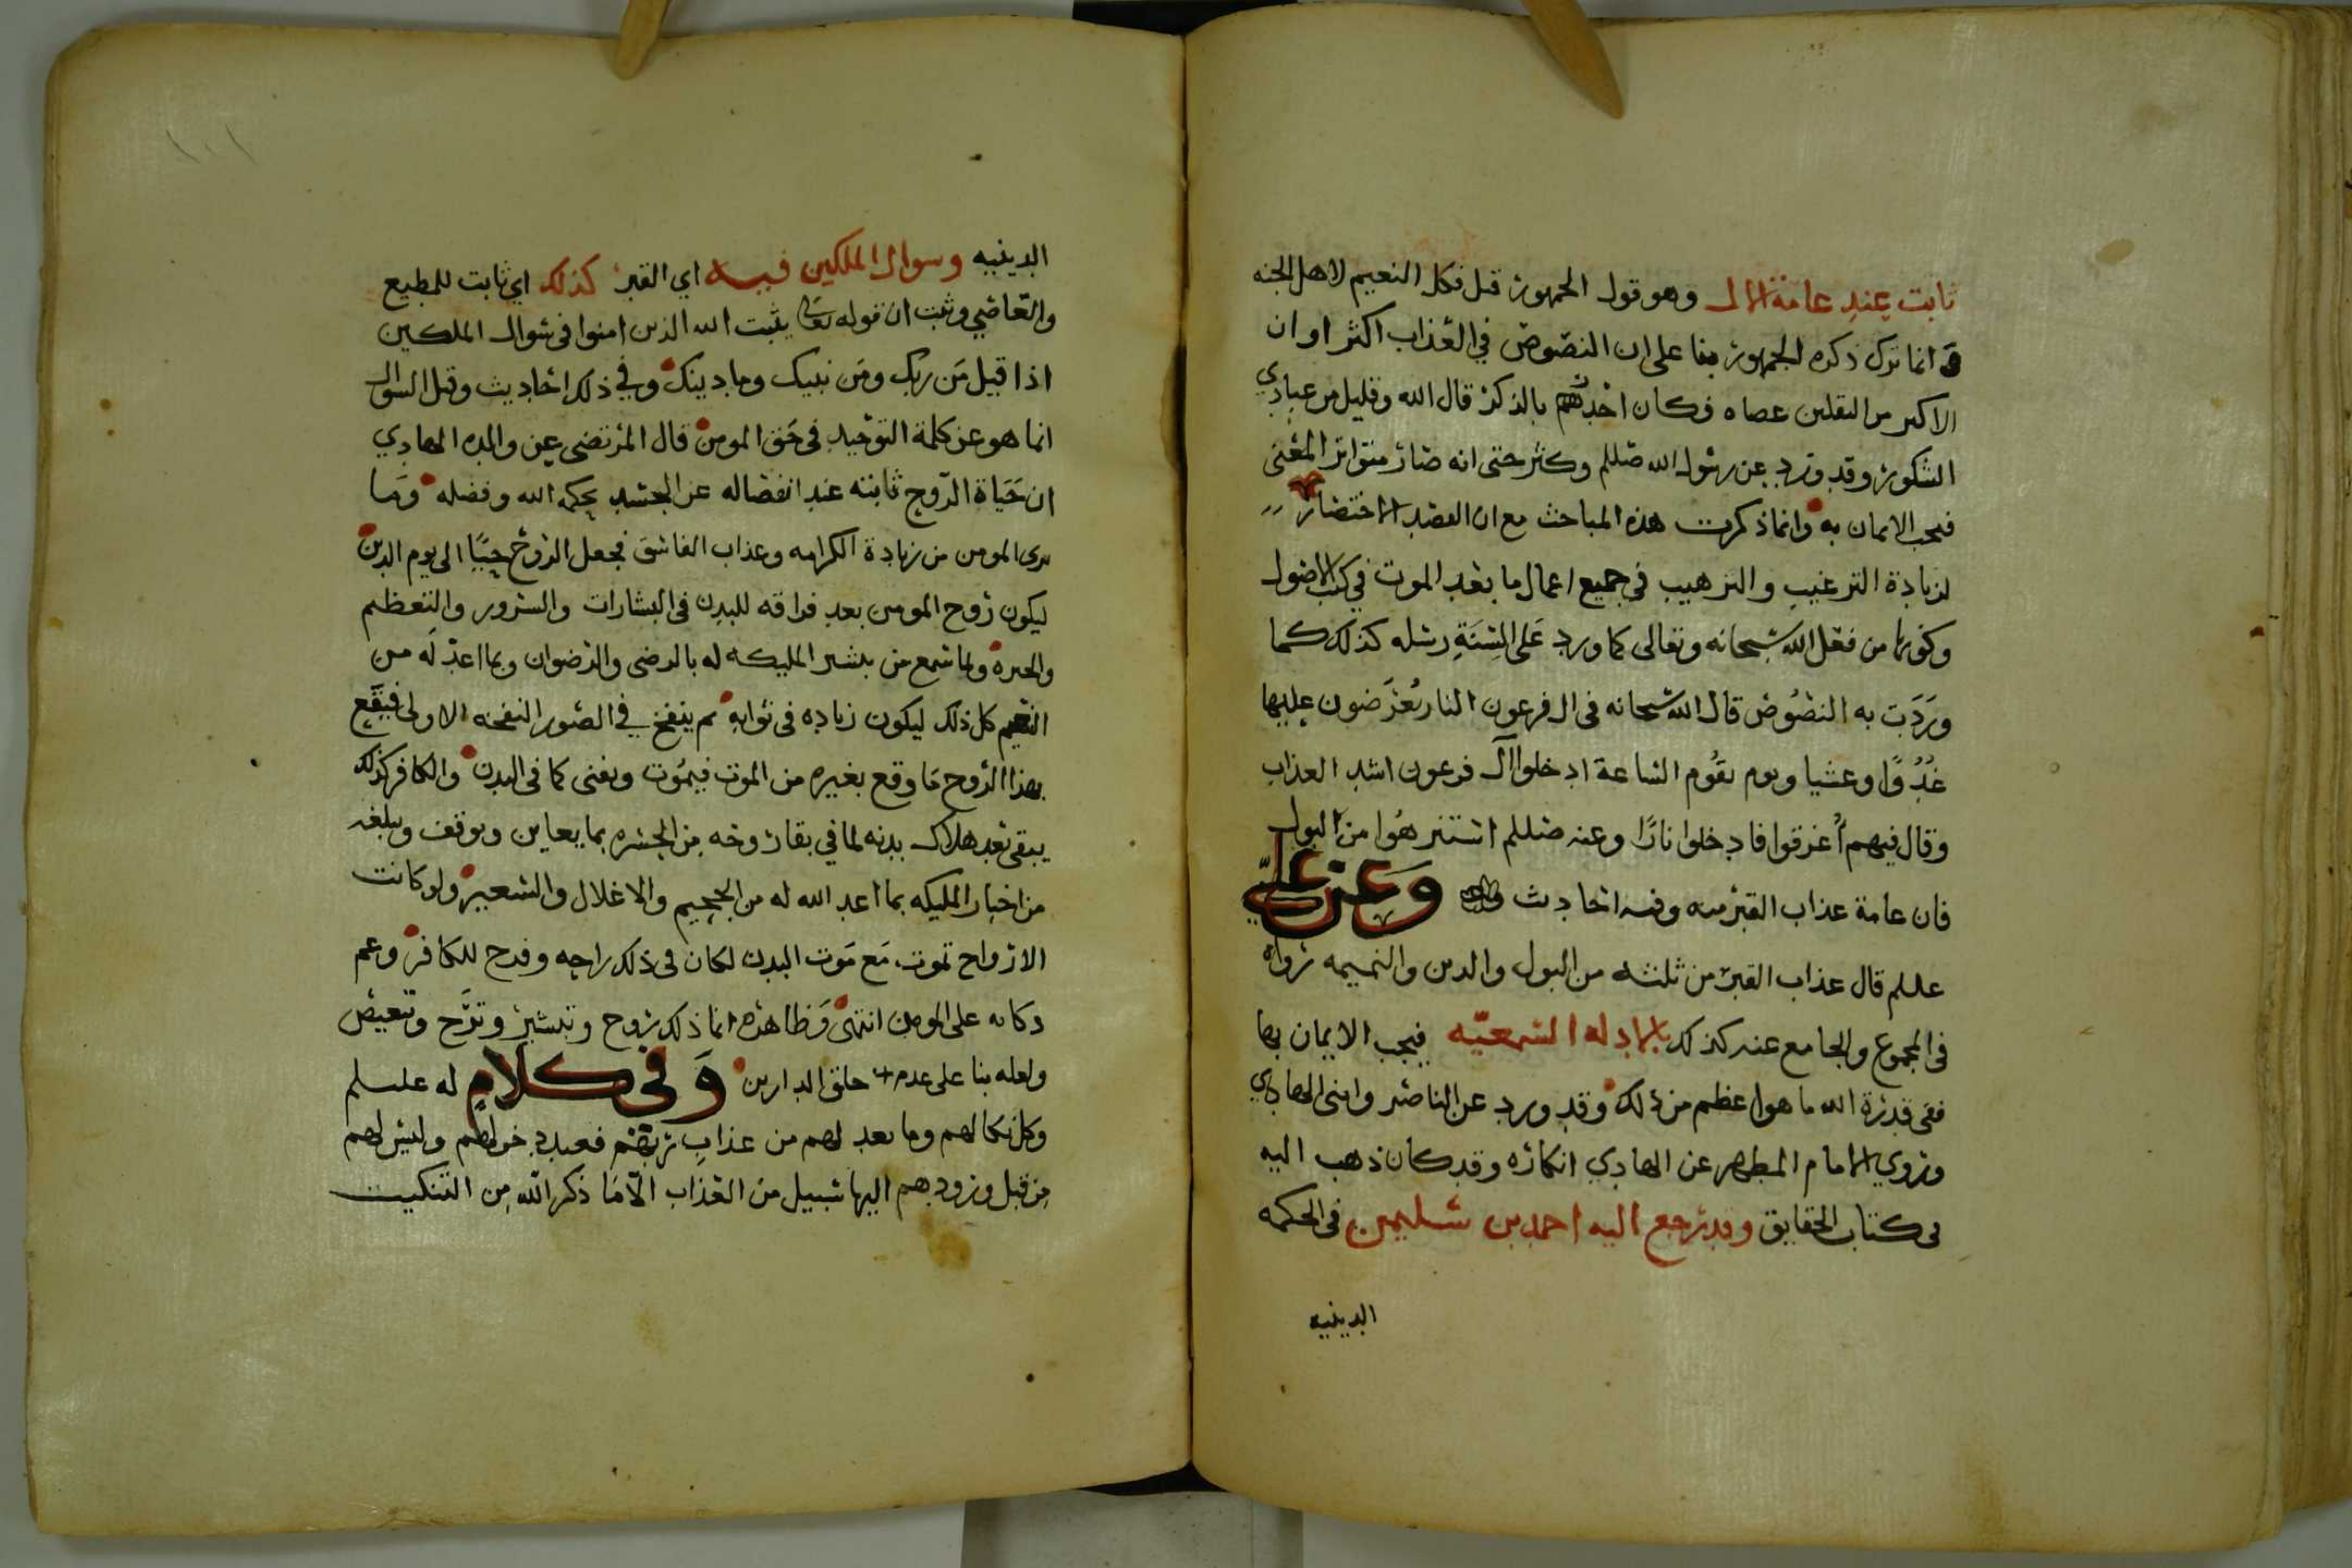 ثابت عند عامة الال وهو قول الجمهور قيل فكل النعيم لاهل الجنه
و انما ترك ذكره الجمهور بنا على ان النصوص في العذاب اكثر او ان
الاكثر من الثقلين عصاه فكان احدهم بالذكر قال الله وقليل من عبادي
الشكور وقد ورد عن رسول الله صللم وكثر حتى انه صار متواتر المعنى
فيجب الايمان به وانما ذكرت هذه المباحث مع ان القصد الاختصار
لزيادة الترغيب والترهيب في جميع اعمال ما بعد الموت في كتب الاصول
وكونها من فعل الله سبحانه وتعالى كما ورد على السنة رسله كذلك كما
وردت به النصوص قال الله سبحانه في ال فرعون النار يعرضون عليها
غدوا وعشيا ويوم تقوم الساعة ادخلوا آل فرعون اشد العذاب
وقال فيهم أغرقوا فادخلوا نارا وعنه صللم استنزهوا من البول
فان عامة عذاب القبر منه وفيه احاديث وعن علي
عللم قال عذاب القبر من ثلثه من البول والدين والنميمه رواه
في المجموع والجامع عنه كذلك بالادله السمعيه فيجب الايمان بها
ففي قدرة الله ما هو اعظم من ذلك وقد ورد عن الناصر وابني الهادي
وروي الامام المطهر عن الهادي انكاره وقد كان ذهب اليه
في كتاب الحقايق وقد رجع اليه احمد بن سليمن في الحكمه
الدينيه
١٠١
الدينيه وسوال الملكين فيه اي القبر كذلك اي ثابت للمطيع
والعاصي وثبت ان قوله تعالى يثبت الله الذين امنوا في سوال الملكين
اذا قيل من ربك ومن نبيك وما دينك وفي ذلك احاديث وقيل السوال
انما هو عن كلمة التوحيد في حق المومن قال المرتضى عن والده الهادي
ان حياة الروح ثابته عند انفصاله عن الجسد بحكمه الله وفضله وما
يرى المومن من زيادة الكرامه وعذاب الفاسق فجعل الروح حييا الى يوم الدين
ليكون روح المومن بعد فراقه للبدن في البشارات والسرور والتعظيم
والحبره ولما سمع من بتبشير المليكه له بالرضى والرضوان وبما اعد له من
النعيم كل ذلك ليكون زياده في ثوابه ثم ينفخ في الصور النفخه الاولى فيقع
بهذا الروح ما وقع بغيره من الموت فيموت ويفنى كما في البدن والكافر كذلك
يبقى بعد هلاك بدنه لما في بقا روحه من الحسره بما يعاين ويوقف ويبلغه
من اخبار المليكه بما اعد الله له من الجحيم والاغلال والسعير ولو كانت
الارواح تموت مع موت البدن لكان في ذلك راحه وفرح للكافر وغم
دكانه على المومن انتهى وظاهره انما ذلك روح وتبشير وترح وتبعيض
ولعله بنا على عدم خلق الدارين وفي كلام له عللم
وكل نكالهم وما يعد لهم من عذاب ربهم فعبد دخولهم وليس لهم
من قبل ورودهم اليها سبيل من العذاب الا ما ذكر الله من التنكيت